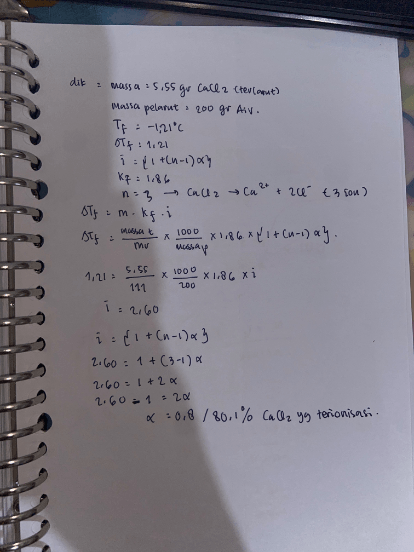 dik : massa = 5,55 gr CaCl2 (terlarut)
massa pelarut = 200 gr Air.
Tf = -1,21°C
ΔTf = 1,21
i = {1 + (n-1) α}
Kf = 1,86
n = 3 → CaCl2 → Ca2+ + 2Cl- (3 ion)
ΔTf = m . Kf . i
ΔTf = massa t / mr × 1000 / massa p × 1,86 × {1 + (n-1) α}.
1,21 = 5,55 / 111 × 1000 / 200 × 1,86 × i
i = 2,60
i = {1 + (n-1) α}
2,60 = 1 + (3-1) α
2,60 = 1 + 2α
2,60 - 1 = 2α
α = 0,8 / 80,1% CaCl2 yg terionisasi.